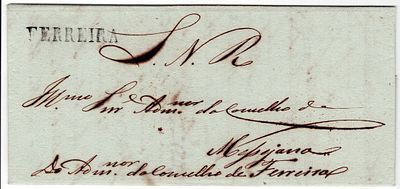 FERREIRA
S. N. R.
Illmo Snr Admnor do Concelho de
Messejana
Do Admnor do Concelho de Ferreira